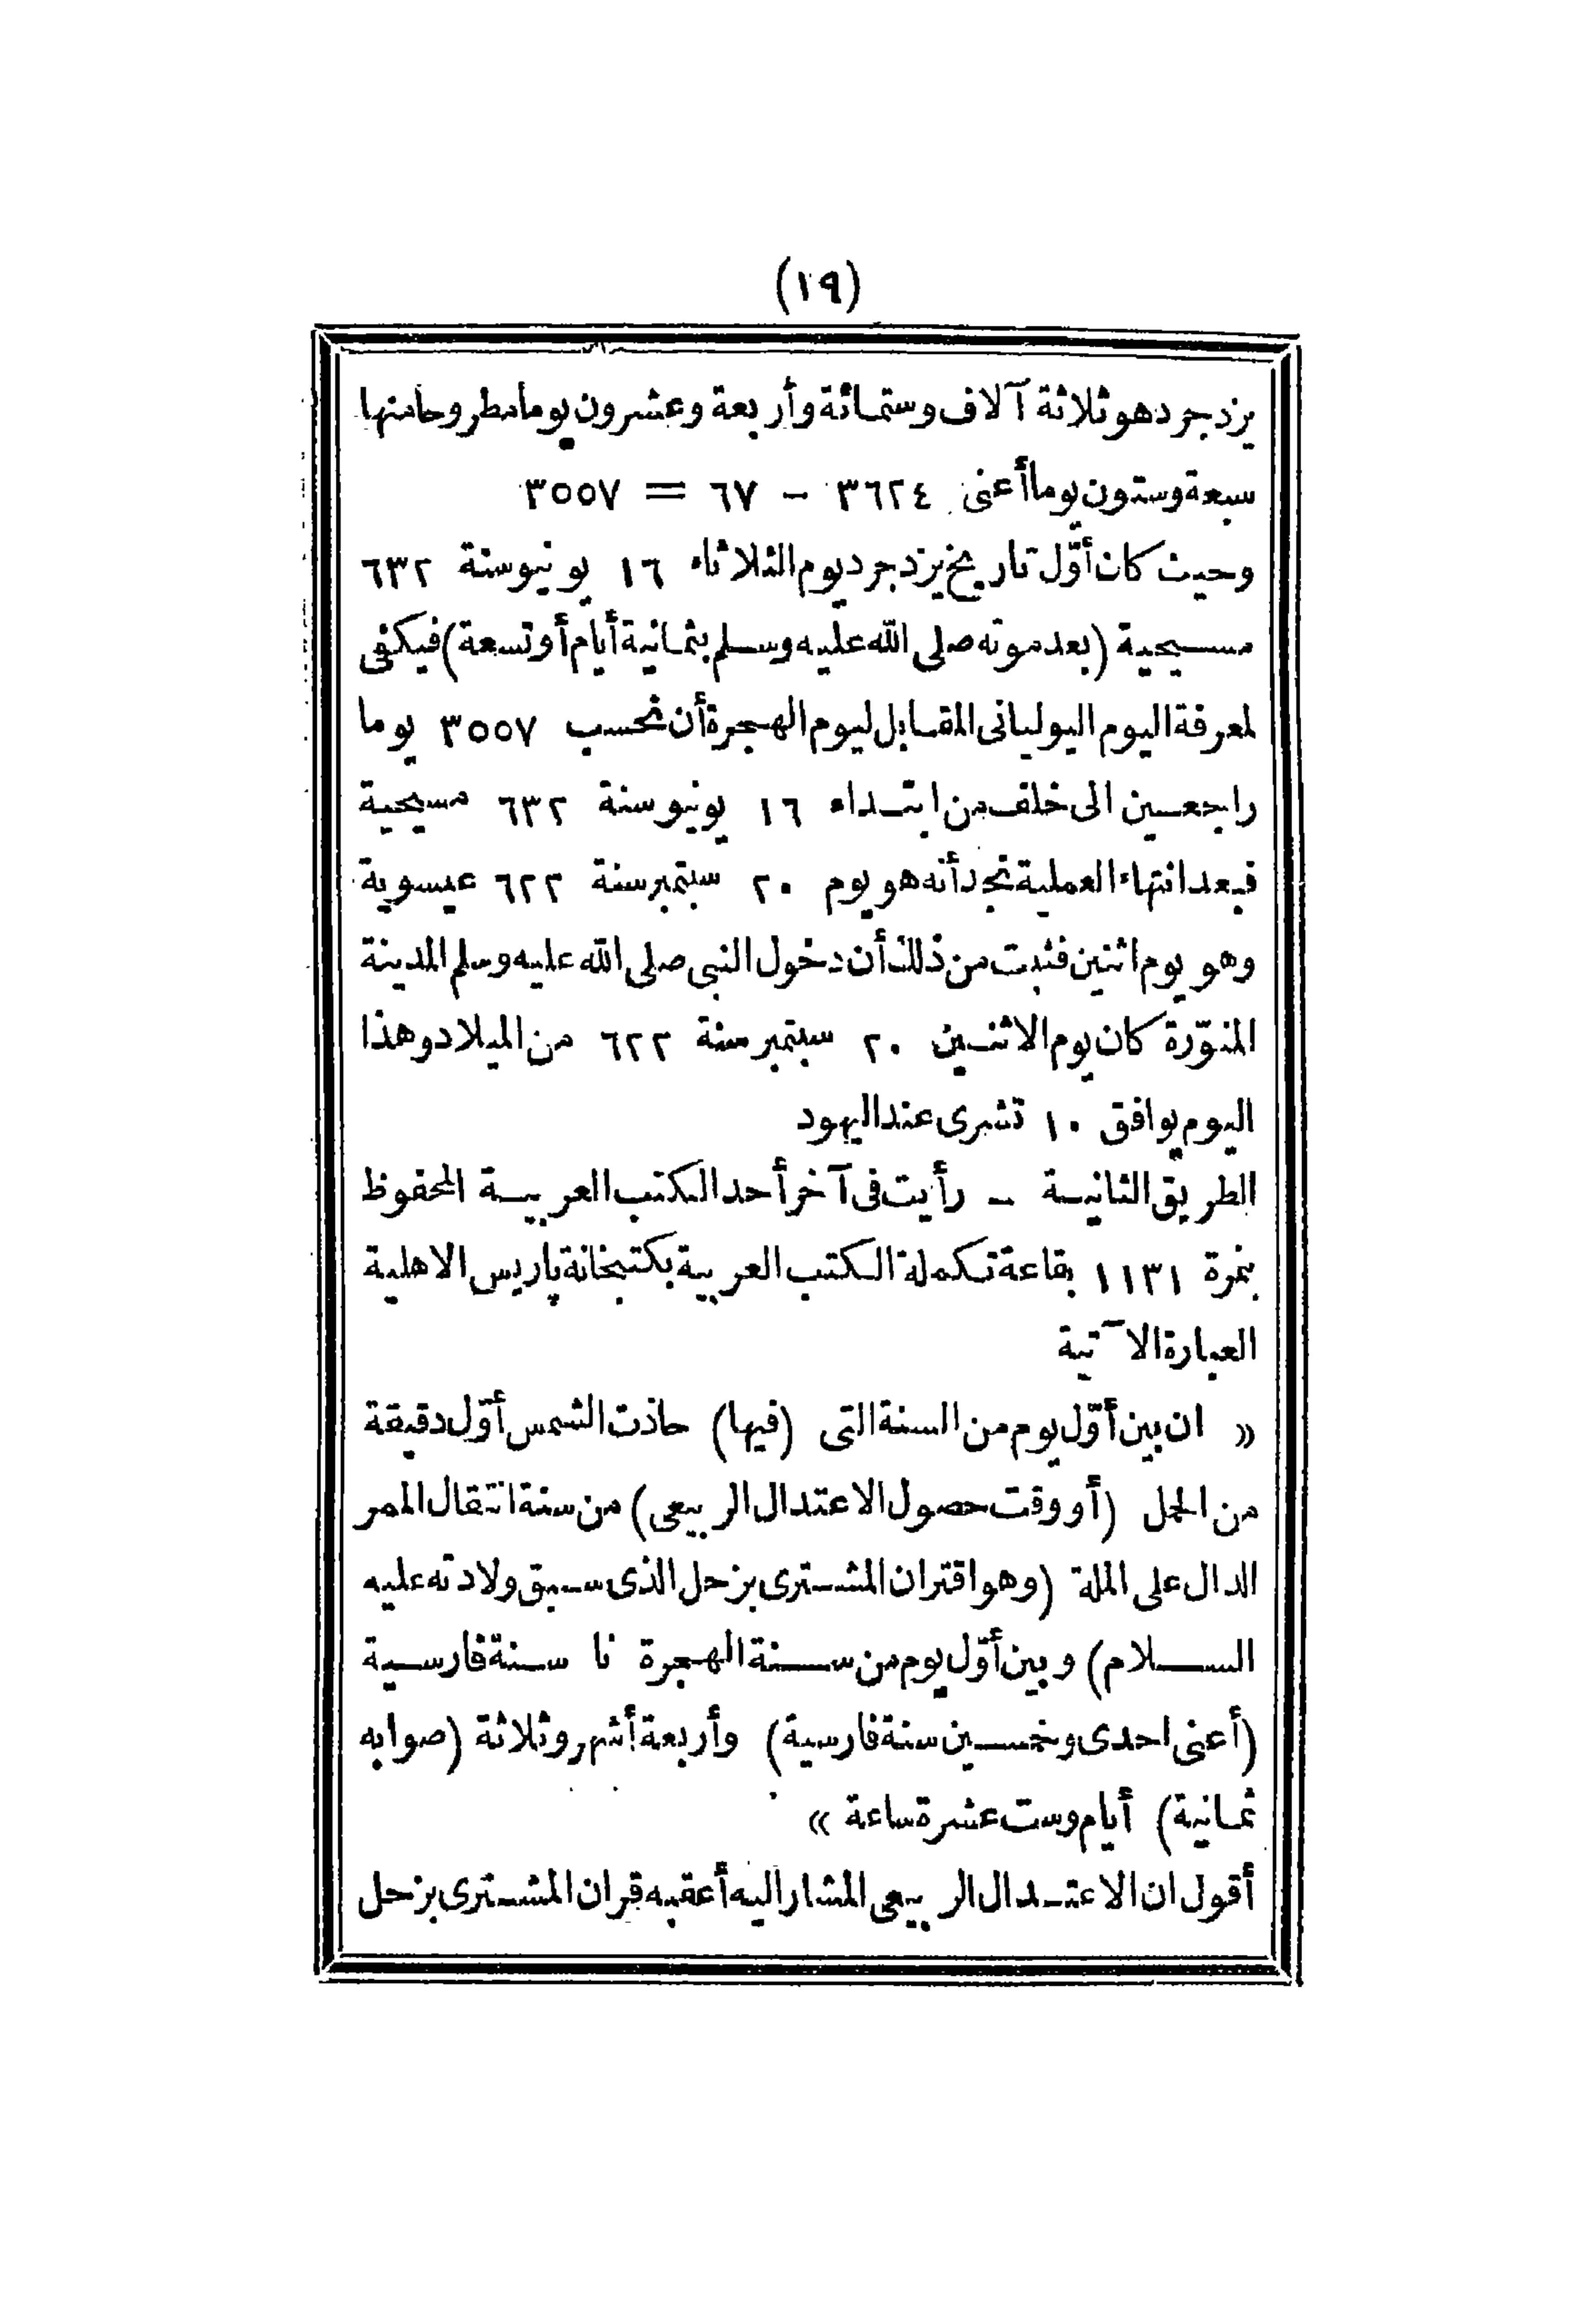 (١٩)
يزدجرد هو ثلاثة آلاف وستمائة وأربعة وعشرون يوما مطروحا منها
سبعة وستون يوما أعنى ٣٦٢٤ – ٦٧ = ٣٥٥٧
وحيث كان أوّل تاريخ يزدجرد يوم الثلاثاء ١٦ يونيو سنة ٦٣٢
مسيحية (بعد موته صلى الله عليه وسلم بثمانية أيام أو تسعة) فيكفى
لمعرفة اليوم اليوليانى المقابل ليوم الهجرة أن نحسب ٣٥٥٧ يوما
راجعين الى خلف من ابتداء ١٦ يونيو سنة ٦٣٢ مسيحية
فبعد انتهاء العملية نجد أنه هو يوم ٢٠ سبتمبر سنة ٦٢٢ عيسوية
وهو يوم اثنين فثبت من ذلك أن دخول النبى صلى الله عليه وسلم المدينة
المنوّرة كان يوم الاثنين ٢٠ سبتمبر سنة ٦٢٢ من الميلاد وهذا
اليوم يوافق ١٠ تشرى عند اليهود
الطريق الثانية – رأيت فى آخر أحد الكتب العربية المحفوظ
بنمرة ١١٣١ بقاعة تكملة الكتب العربية بكتبخانة پاريس الاهلية
العبارة الآتية
« ان بين أوّل يوم من السنة التى (فيها) حاذت الشمس أوّل دقيقة
من الحمل (أو وقت حصول الاعتدال الربيعى) من سنة انتقال الممر
الدال على الملة (وهو اقتران المشترى بزحل الذى سبق ولادته عليه
السلام) وبين أوّل يوم من سنة الهجرة نا سنة فارسية
(أعنى احدى وخمسين سنة فارسية) وأربعة أشهر وثلاثة (صوابه
ثمانية) أيام وست عشرة ساعة »
أقول ان الاعتدال الربيعى المشار اليه أعقبه قران المشترى بزحل